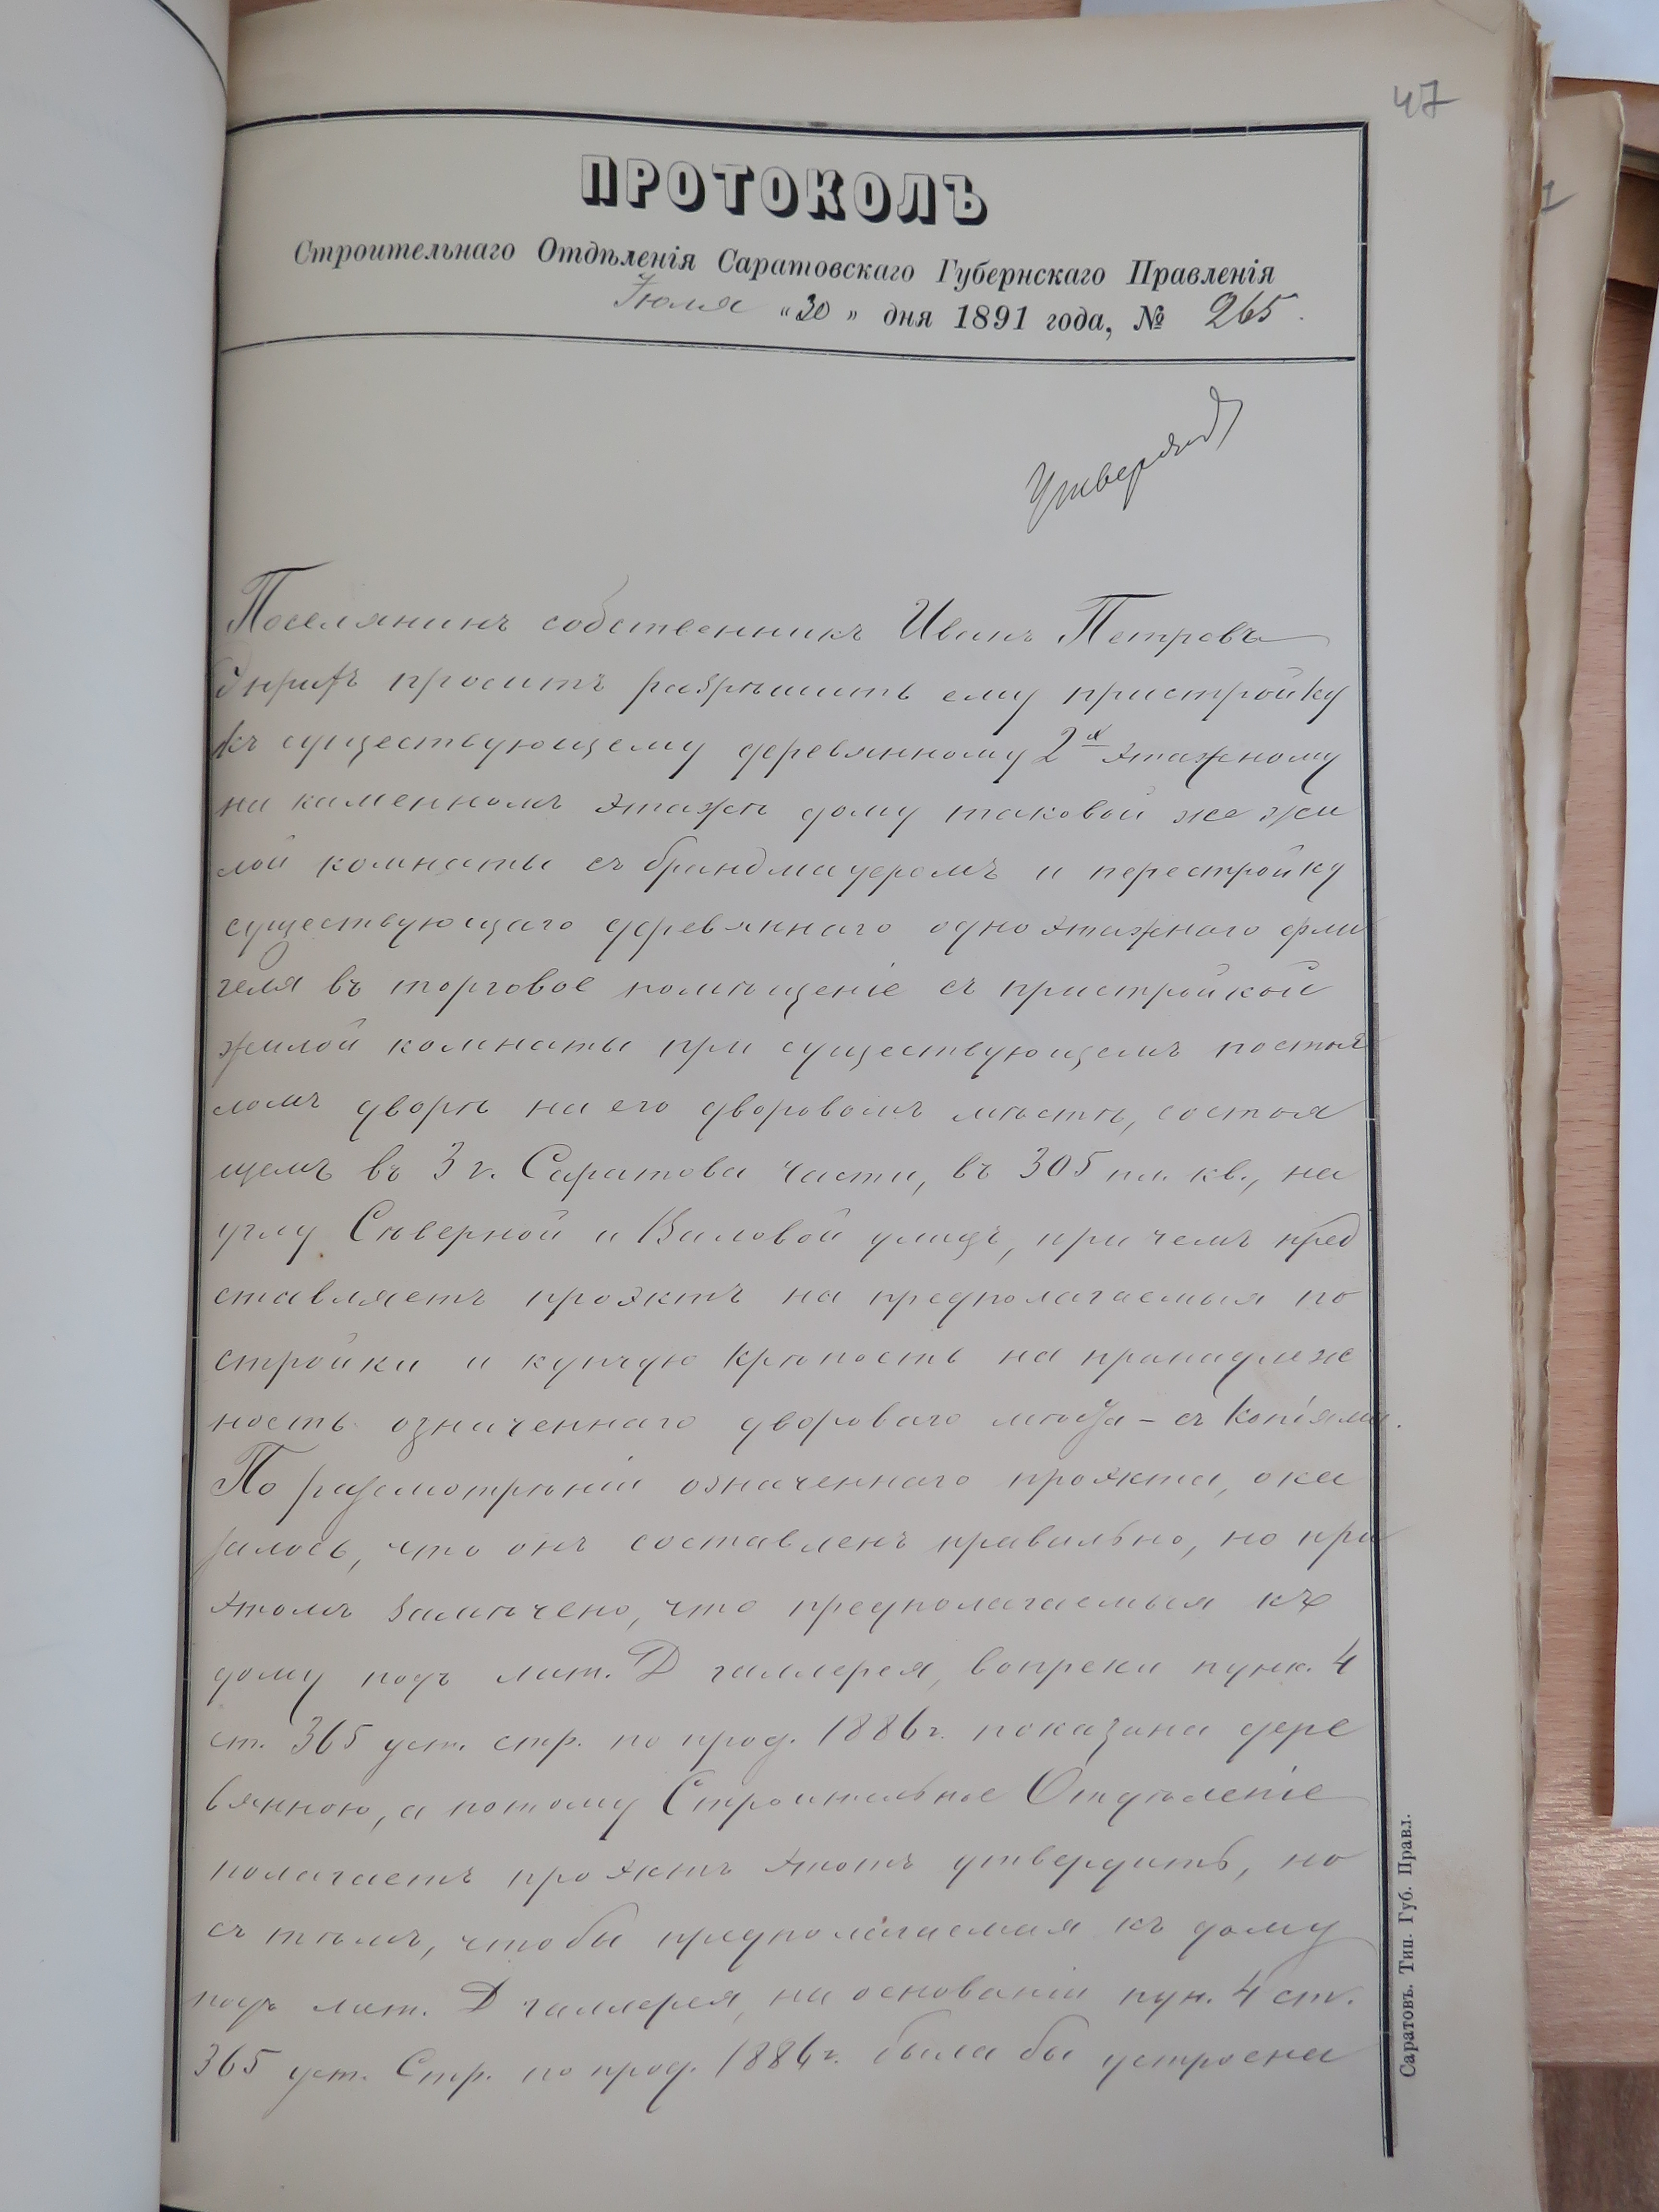 47
ПРОТОКОЛЪ
Строительнаго Отдѣленія Саратовскаго Губернскаго Правленія
Июля «30» дня 1891 года, № 265.
Утвержд
Поселянинъ собственникъ Иванъ Петровъ
проситъ разрѣшить ему пристройку
къ существующему деревянному 2х этажному
на каменномъ этажѣ дому таковой же жи
лой комнаты съ брандмауеромъ и перестройку
существующаго деревяннаго одноэтажнаго фли
геля въ торговое помѣщеніе съ пристройкой
жилой комнаты при существующемъ постоя
ломъ дворѣ на его дворовомъ мѣстѣ, состоя
щемъ въ 3 г. Саратова части, въ 305 пл. кв., на
углу Сѣверной и Валовой улицъ, при чемъ пред
ставляетъ проэктъ на предполагаемыя по
стройки и купчую крѣпость на принадлеж
ность означеннаго двороваго мѣста – съ копіями.
По разсмотрѣніи означеннаго проэкта, ока
залось, что онъ составленъ правильно, но при
этомъ замѣчено, что предполагаемая къ
дому подъ лит. Д галлерея, вопреки пунк. 4
ст. 365 уст. стр. по прод. 1886 г. показана дере
вянною, а потому Строительное Отдѣленіе
полагаетъ проэктъ этотъ утвердить, но
съ тѣмъ, чтобы предполагаемая къ дому
подъ лит. Д галлерея, на основаніи пун. 4 ст.
365 уст. Стр. по прод. 1886 г. была бы устроена
Саратовъ. Тип. Губ. Правл.